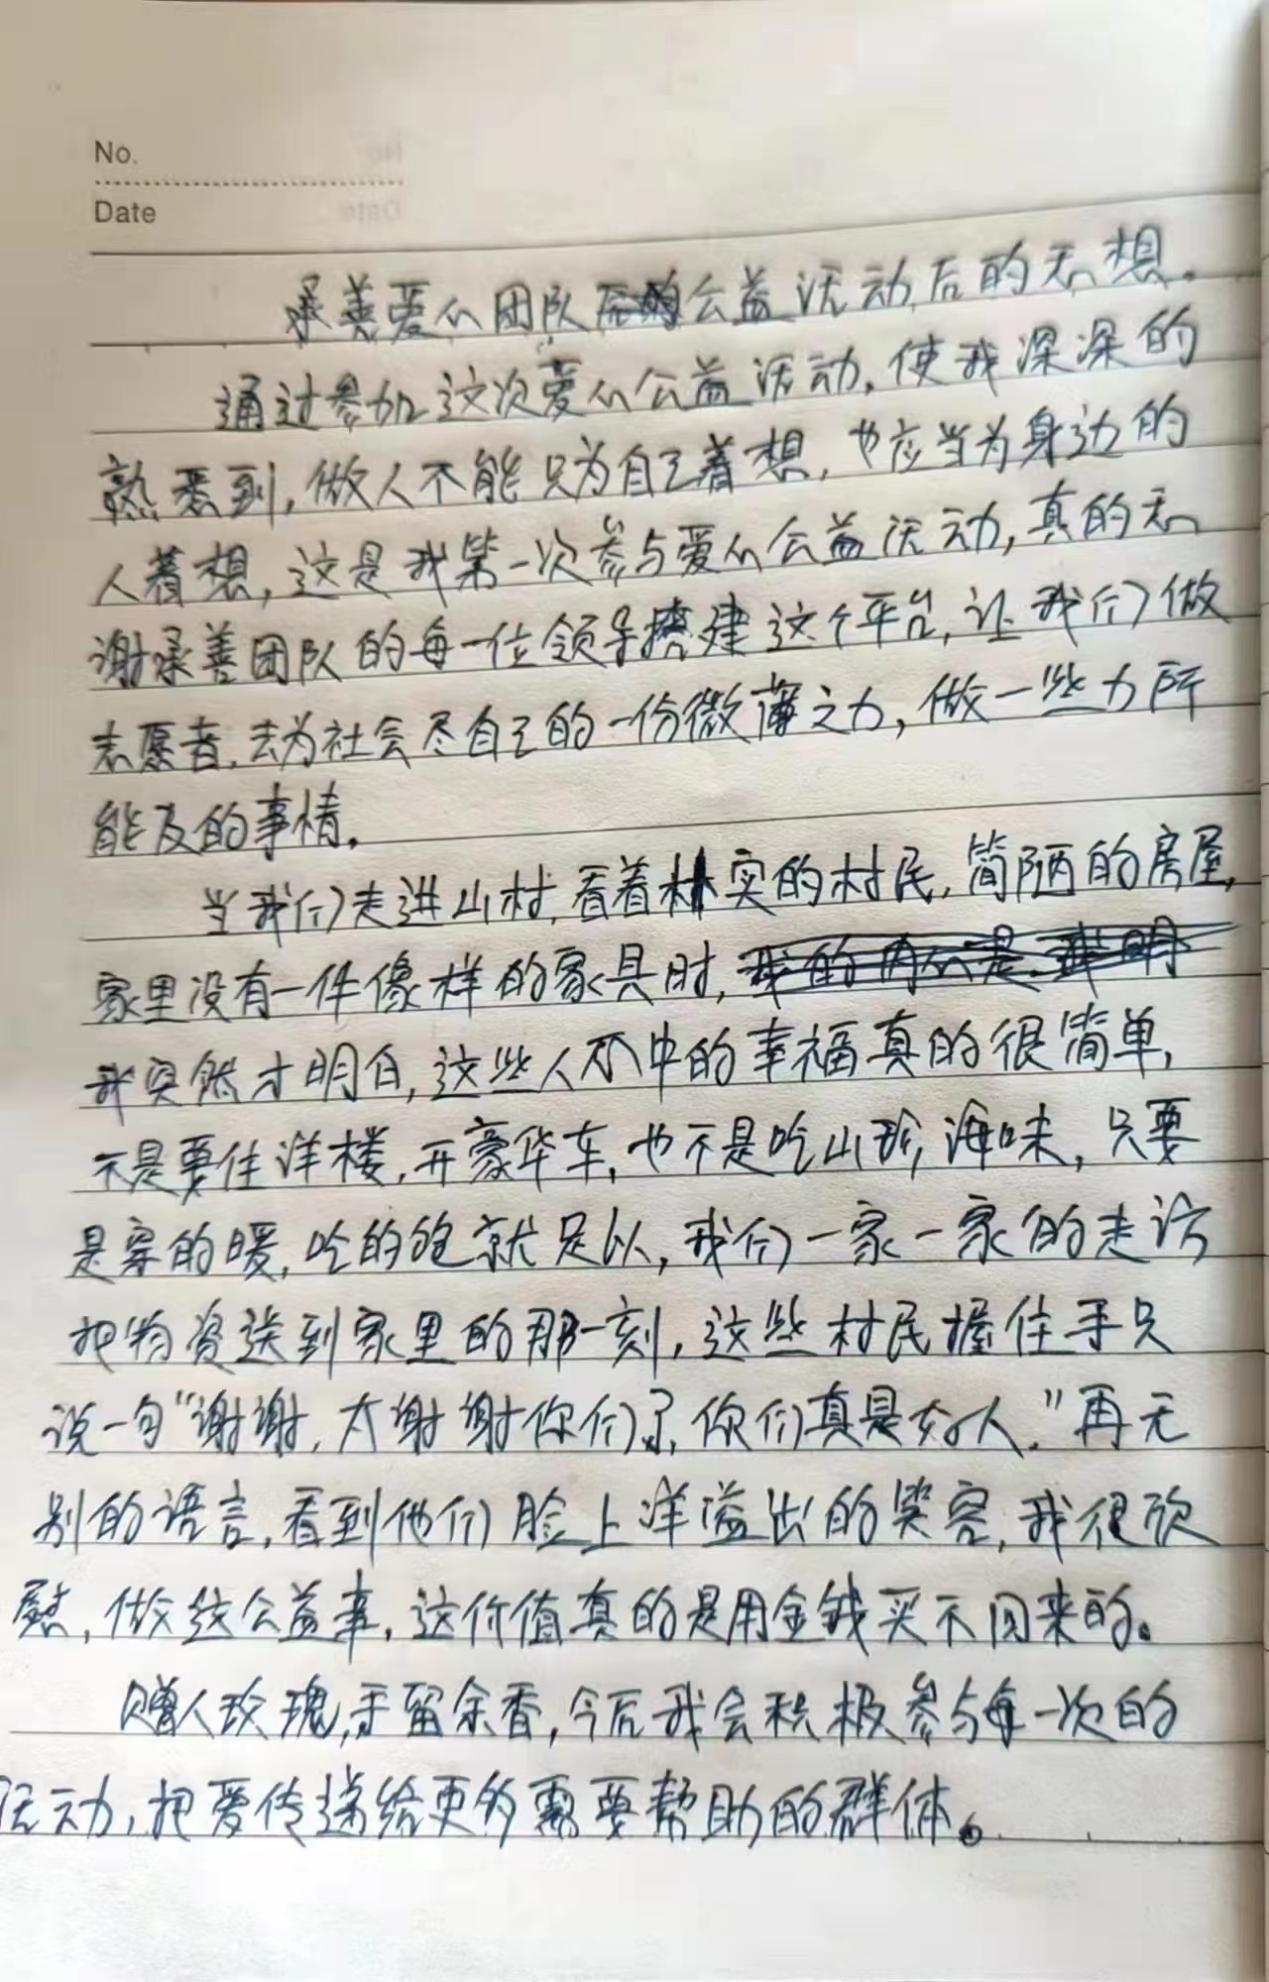 No.
Date
承善爱心团队公益活动后的感想。
通过参加这次爱心公益活动，使我深深的
熟悉到，做人不能只为自己着想，也应当为身边的
人着想，这是我第一次参与爱心公益活动，真的感
谢承善团队的每一位领导搭建这个平台，让我们做
志愿者，去为社会尽自己的一份微薄之力，做一些力所
能及的事情。
当我们走进山村，看着朴实的村民，简陋的房屋，
家里没有一件像样的家具时，
我突然才明白，这些人心中的幸福真的很简单，
不是要住洋楼，开豪华车，也不是吃山珍海味，只要
是穿的暖，吃的饱就足以，我们一家一家的走访
把物资送到家里的那一刻，这些村民握住手只
说一句“谢谢，太谢谢你们了，你们真是好人。”再无
别的语言，看到他们脸上洋溢出的笑容，我很欣
慰，做这公益事，这价值真的是用金钱买不回来的。
赠人玫瑰，手留余香，今后我会积极参与每一次的
活动，把爱传递给更多需要帮助的群体。